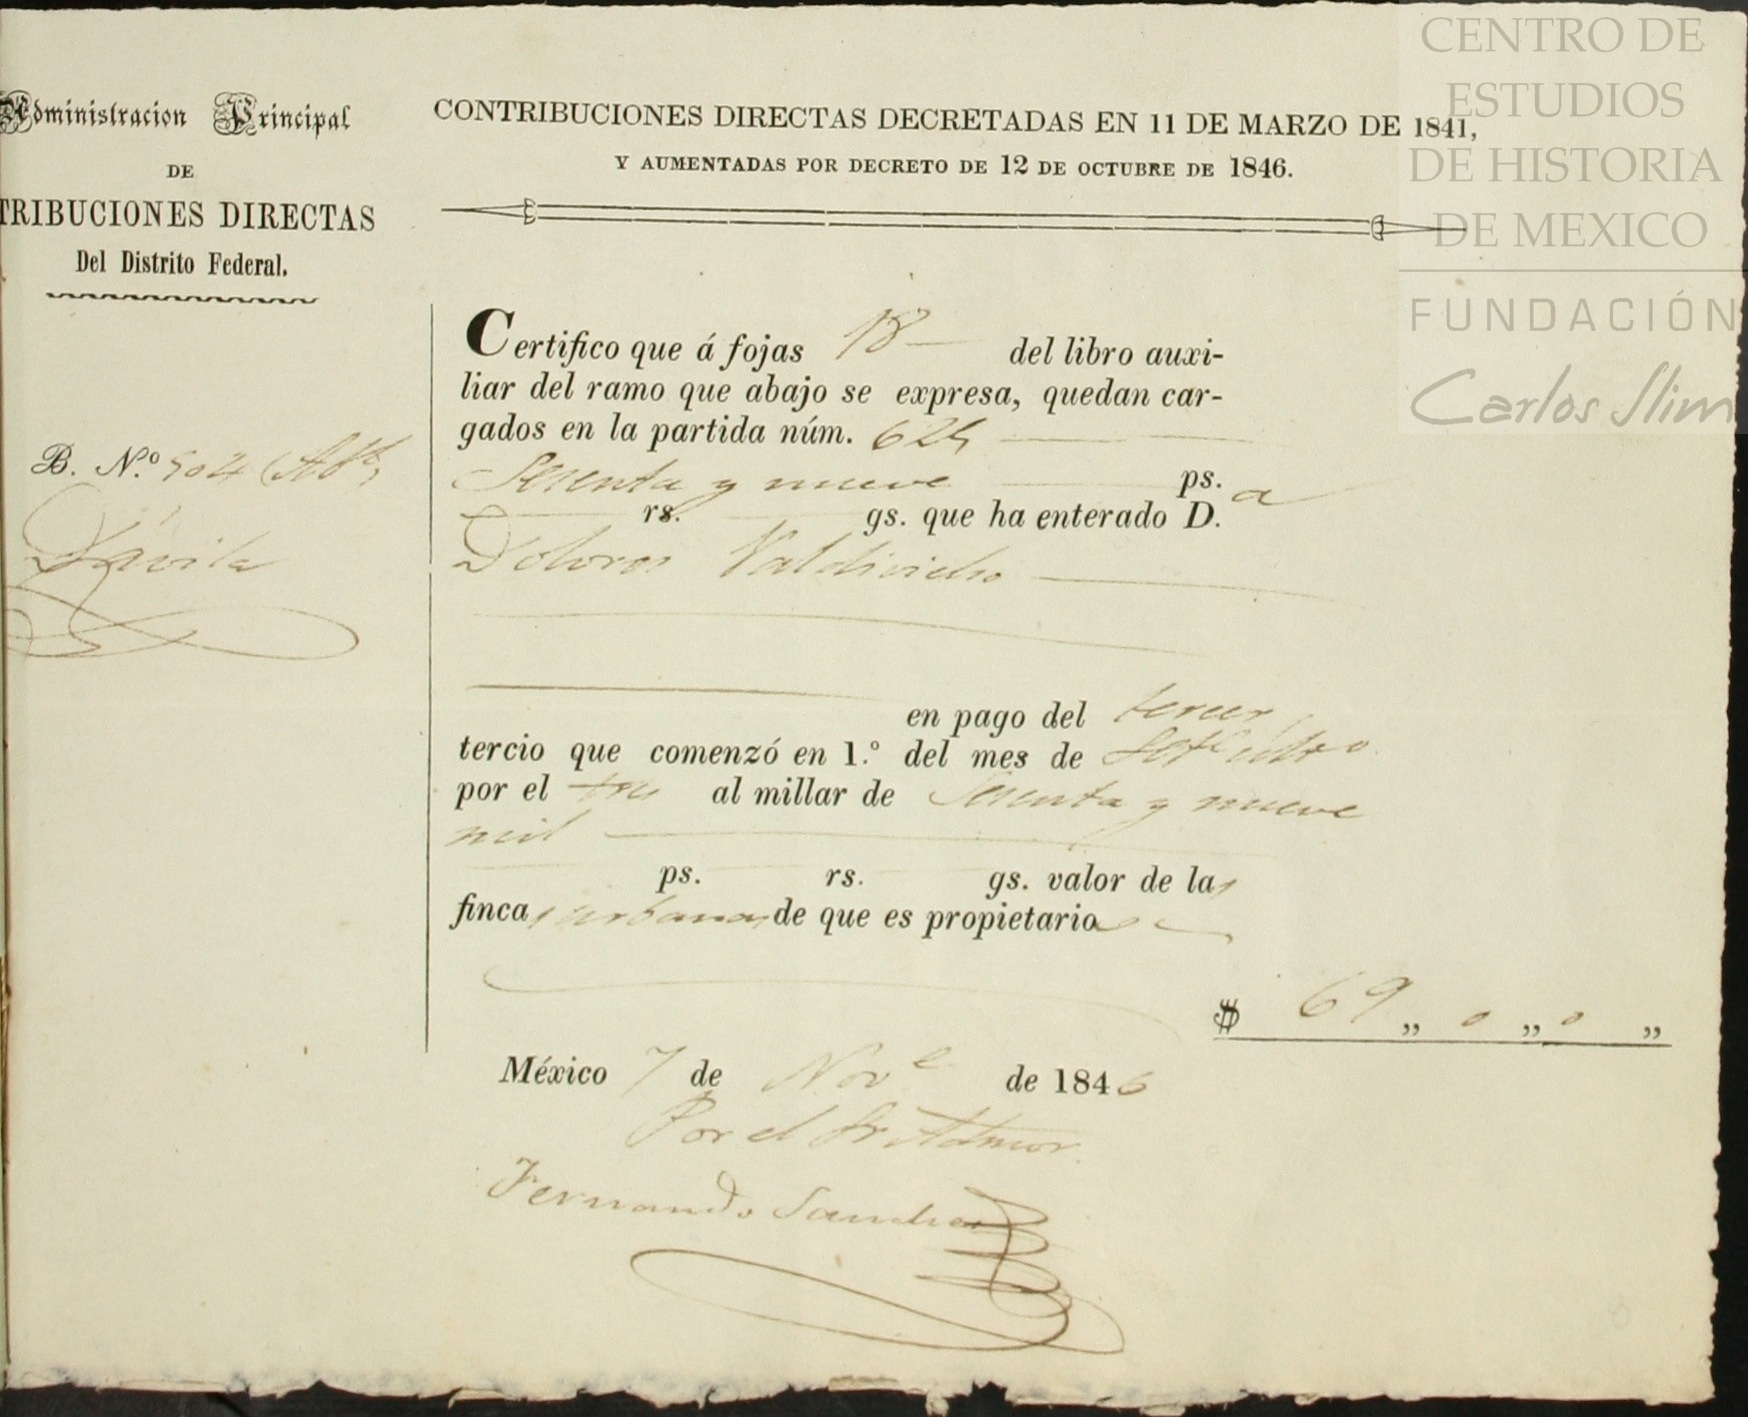 Administracion Principal
DE
TRIBUCIONES DIRECTAS
Del Distrito Federal.
B. N.º 504
Dávila
CONTRIBUCIONES DIRECTAS DECRETADAS EN 11 DE MARZO DE 1841,
Y AUMENTADAS POR DECRETO DE 12 DE OCTUBRE DE 1846.
Certifico que á fojas 18 del libro auxi-
liar del ramo que abajo se expresa, quedan car-
gados en la partida núm. 624
Sesenta y nueve ps.
rs. gs. que ha enterado D.a
Dolores Valdivielso
en pago del tercer
tercio que comenzó en 1.º del mes de
por el tres al millar de Sesenta y nueve
mil
ps. rs. gs. valor de las
fincas urbanas de que es propietaria
$ 69 „ 0 „ 0 „
México 7 de Nove de 1846
Por el Sr Admor
Fernando
CENTRO DE
ESTUDIOS
DE HISTORIA
DE MEXICO
FUNDACIÓN
Carlos Slim